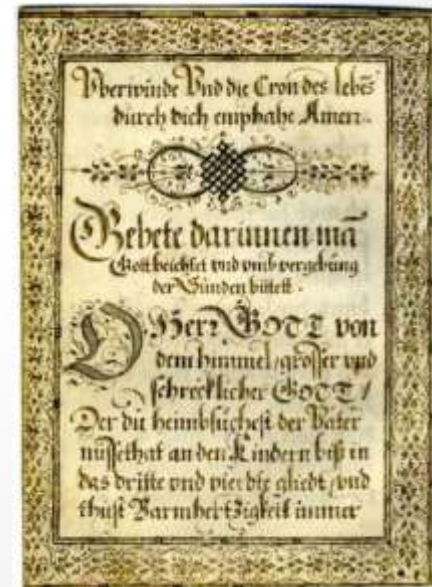 Vberwinde Vnd die Cron des lebēs
durch dich empfahe Amen.
Gebete darinnen mā
Gott beichtet vnd vmb vergebung
der Sünden bittett.
O Herr GOTT von
dem himmel, grosser vnd
schrecklicher GOTT /
Der du heimbsuchest der Vater
missethat an den Kindern biß in
das dritte vnd vierdte gliedt, vnd
thust Barmhertzigkeit immer